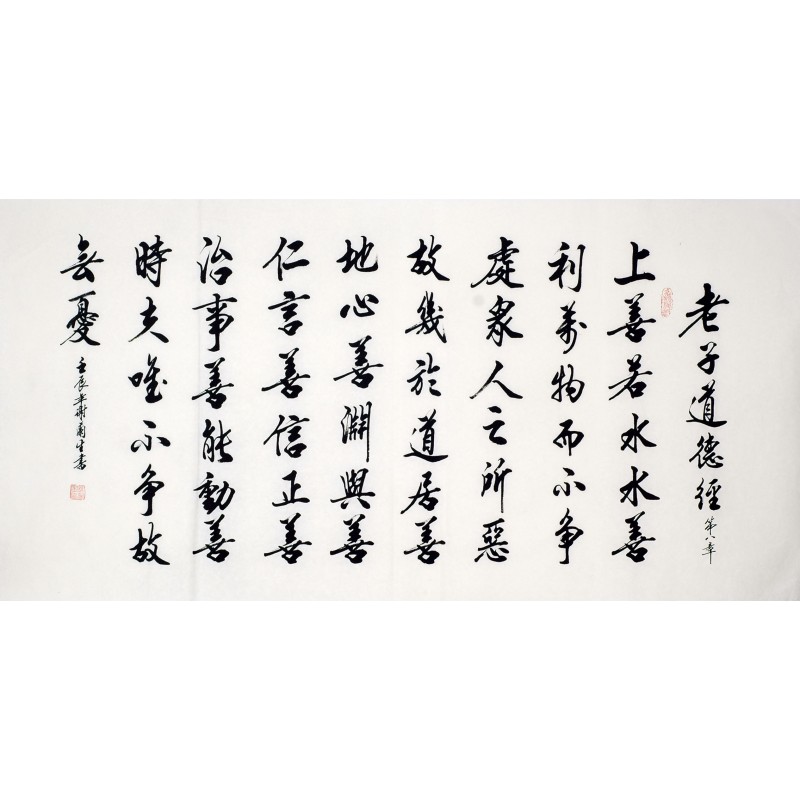 老子道德經 第八章
上善若水水善
利萬物而不争
處衆人之所惡
故幾於道居善
地心善淵與善
仁言善信正善
治事善能動善
時夫唯不争故
無憂
壬辰年謝蘭生書